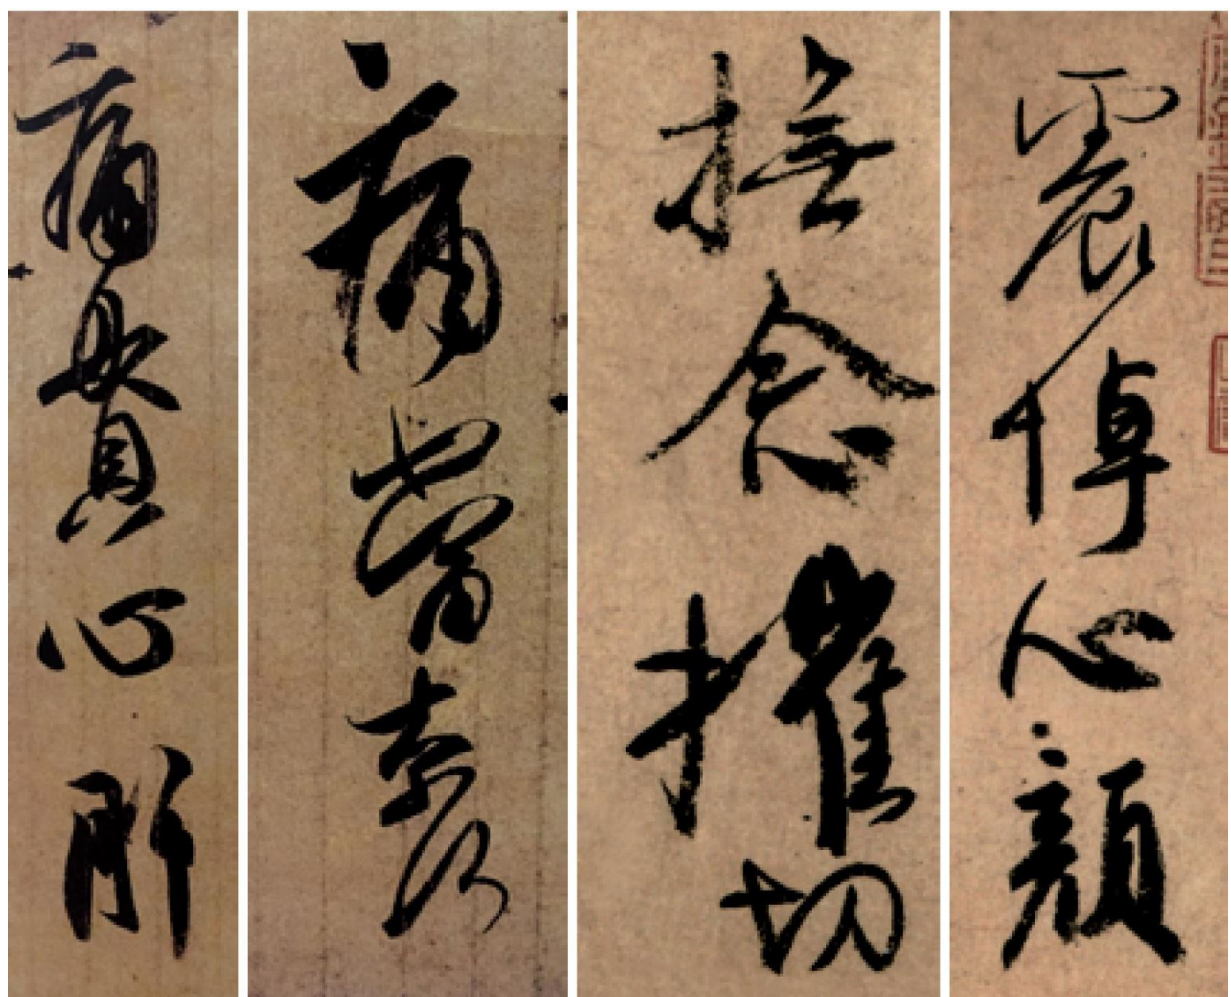 痛貫心肝
痛當奈何
撫念摧切
震悼心顔